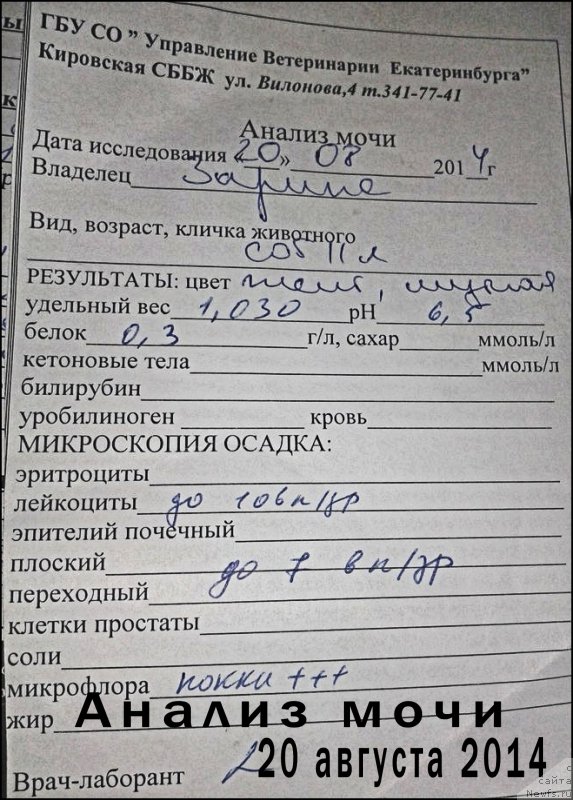 ГБУ СО " Управление Ветеринарии Екатеринбурга"
Кировская СББЖ ул. Вилонова,4 т.341-77-41
Анализ мочи
Дата исследования «20» 08 2014г
Владелец Зарина
Вид, возраст, кличка животного
соб 11 л
РЕЗУЛЬТАТЫ: цвет желт, мутная
удельный вес 1,030 рН 6,5
белок 0,3 г/л, сахар ммоль/л
кетоновые тела ммоль/л
билирубин
уробилиноген кровь
МИКРОСКОПИЯ ОСАДКА:
эритроциты
лейкоциты до 10 в п/зр
эпителий почечный
плоский
переходный до 7 в п/зр
клетки простаты
соли
микрофлора кокки +++
жир
Анализ мочи
20 августа 2014
Врач-лаборант
с сайта
Newfs.ru